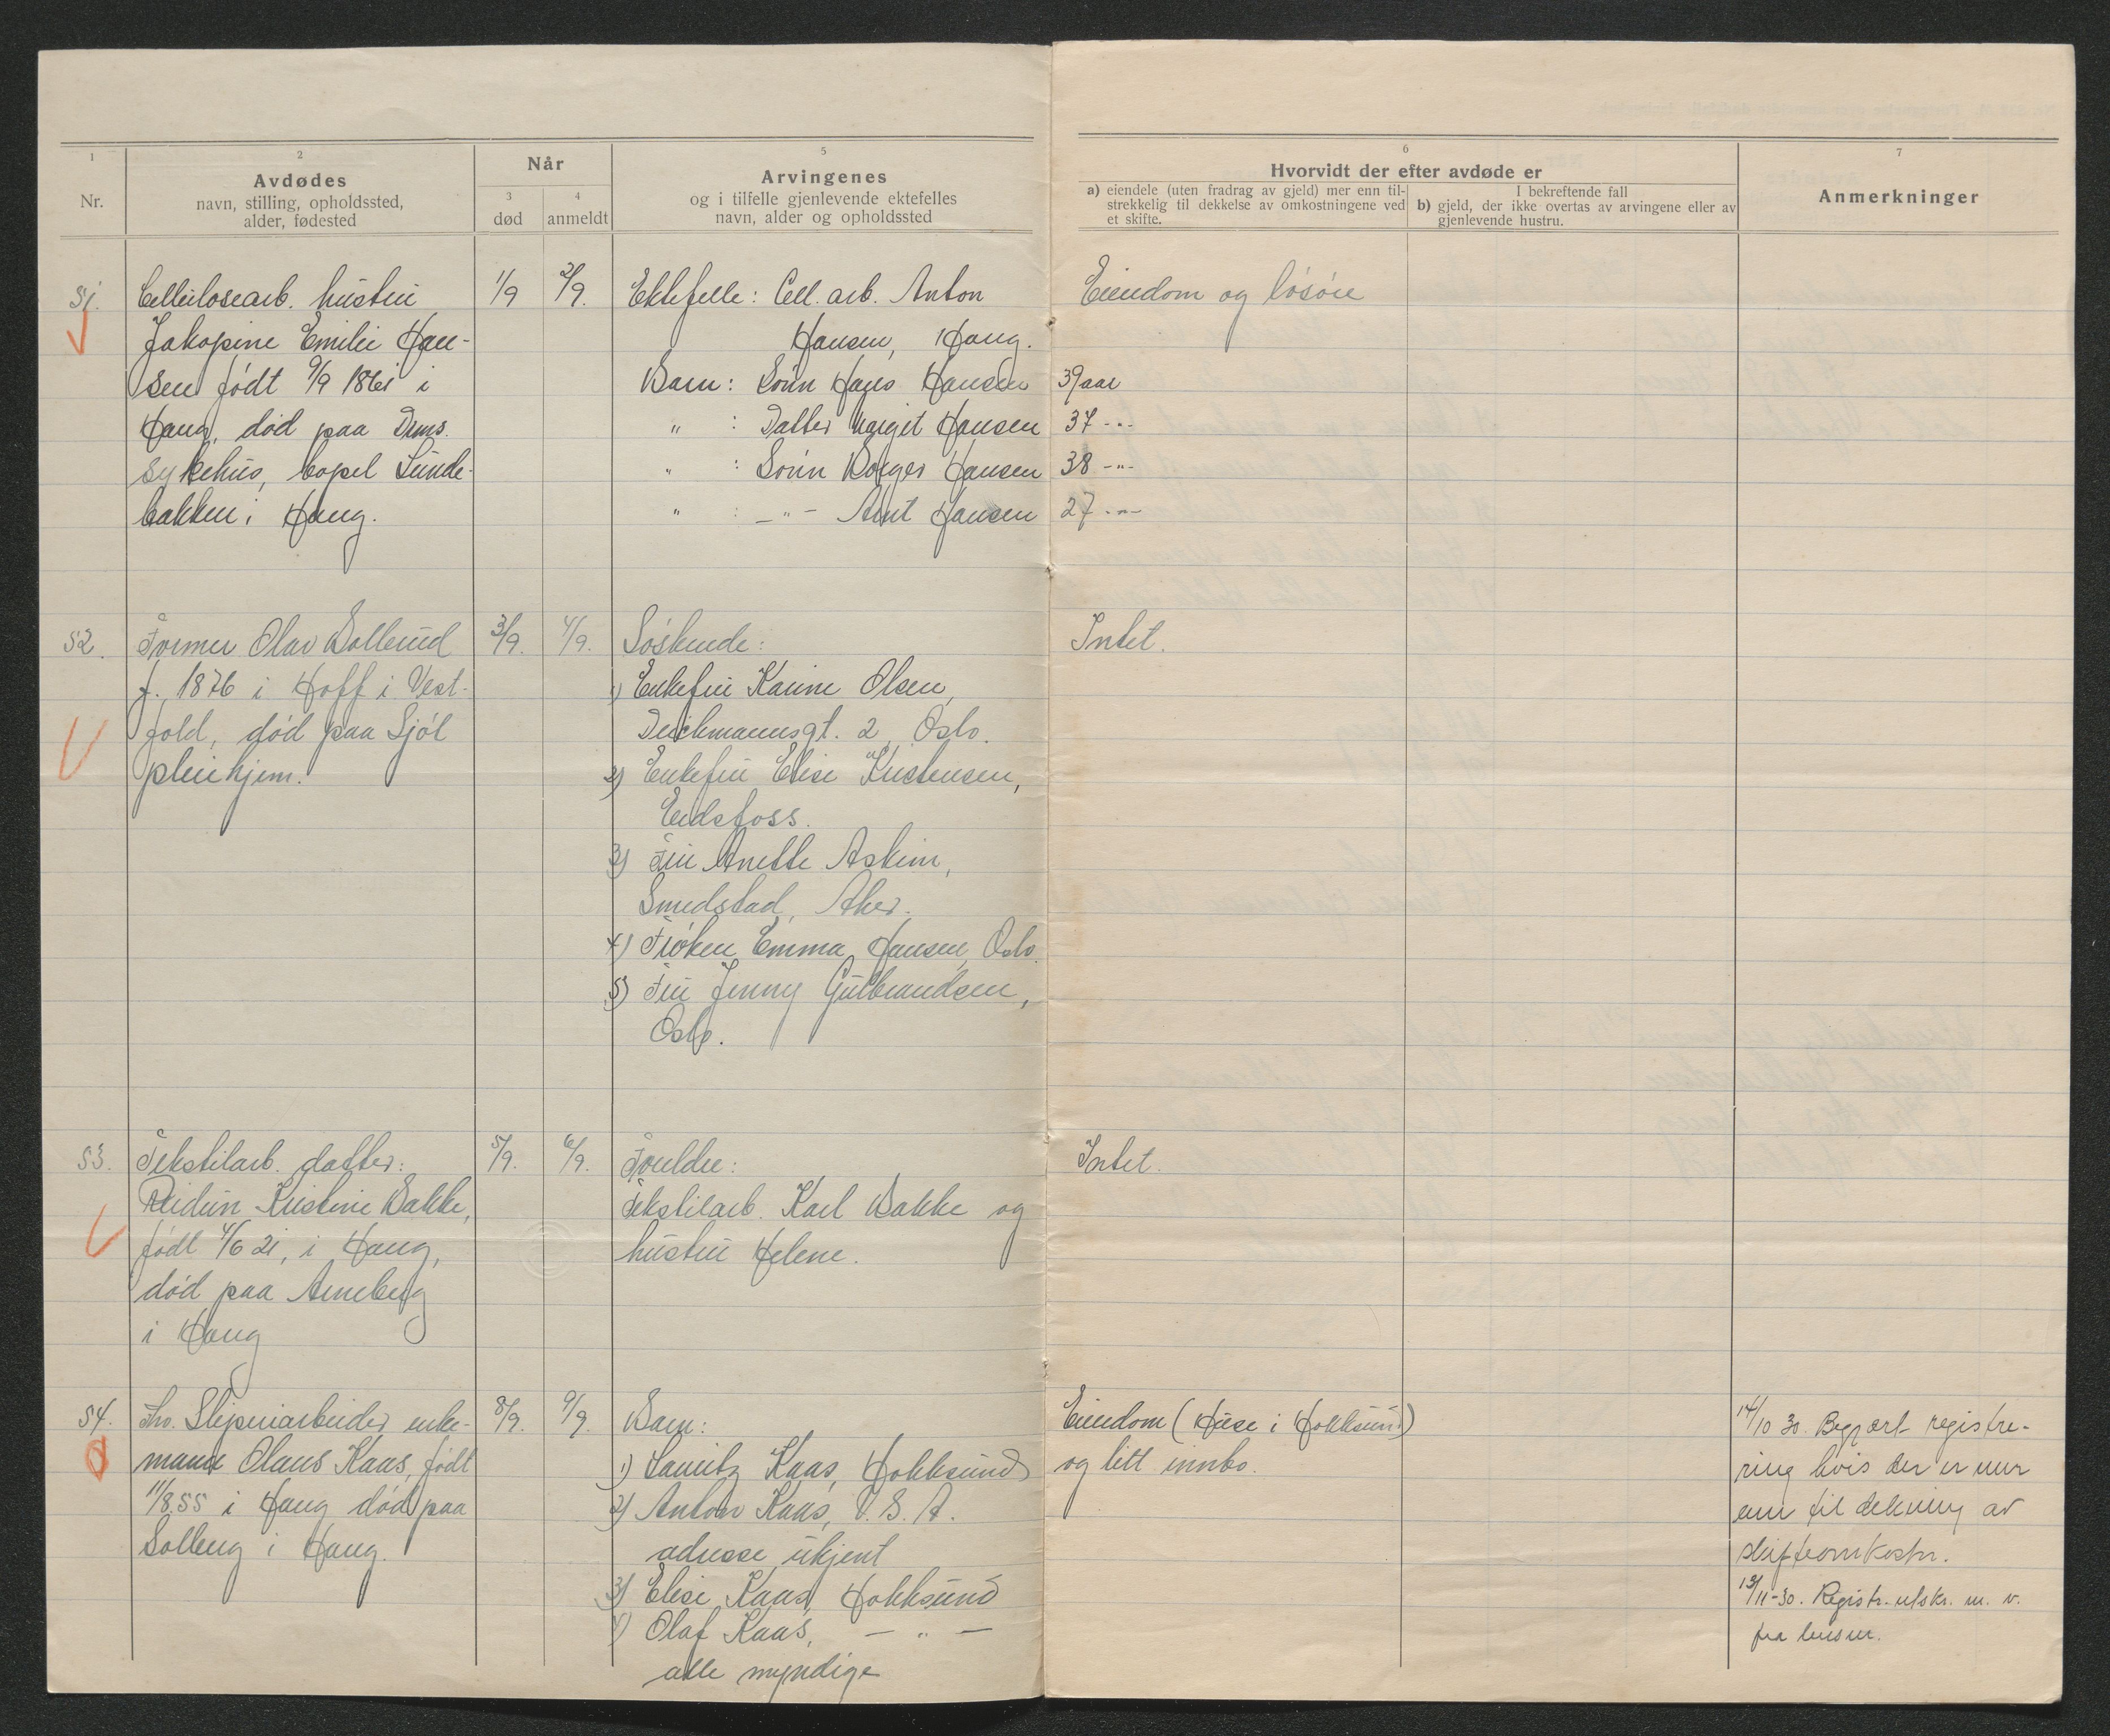 1
Nr.
2
Avdødes
navn, stilling, opholdssted,
alder, fødested
Når
3
død
4
anmeldt
5
Arvingenes
og i tilfelle gjenlevende ektefelles
navn, alder og opholdssted
6
Hvorvidt der efter avdøde er
a) eiendele (uten fradrag av gjeld) mer enn til-
strekkelig til dekkelse av omkostningene ved
et skifte.
I bekreftende fall
b) gjeld, der ikke overtas av arvingene eller av
gjenlevende hustru.
7
Anmerkninger
51.
Cellulosearb. hustru
Jakopine Emilie Han-
sen født 9/9 1861 i
Haug, død paa Dms.
sykehus, bopel Sunde-
bakken i Haug.
1/9
2/9.
Ektefelle: Cell. arb. Anton
Hansen, Haug.
Barn: Sønn Hans Hansen 39 aar
" : Datter Margit Hansen 37 -"-
" : Sønn Borger Hansen 38 -"-
" : -"- Arnt Hansen 27 -"-
Eiendom og løsøre
52.
Former Olav Bollerud
f. 1876 i Hoff i Vest-
fold, død paa Sjøl
pleiehjem.
3/9.
4/9.
Søskende:
1) Enkefru Karine Olsen,
Deichmannsgt. 2, Oslo.
2) Enkefru Elise Kristensen,
Eidsfoss.
3) Fru Anette Askim,
Smedstad, Aker.
4) Frøken Emma Hansen, Oslo.
5) Fru Jenny Gulbrandsen,
Oslo.
Intet.
53.
Tekstilarb. datter:
Reidun Kristine Bakke,
født 4/6 21, i Haug,
død paa Arneberg
i Haug
5/9.
6/9.
Foreldre:
Tekstilarb. Karl Bakke og
hustru Helene.
Intet.
54.
Fhv. Sliperiarbeider enke-
mann Olaus Kaas, født
11/8.55 i Haug død paa
Solberg i Haug.
8/9.
9/9.
Barn:
1) Lauritz Kaas, Hokksund
2) Anton Kaas, U.S.A.
adresse ukjent
3) Elise Kaas, Hokksund
4) Olaf Kaas, - " -
alle myndige
Eiendom (Huse i Hokksund)
og litt innbo.
14/10 30. Begjært registre-
ring hvis der er mer
enn til dekning av
skifteomkostn.
13/11-30. Registr.utskr. m. v.
fra lensm.